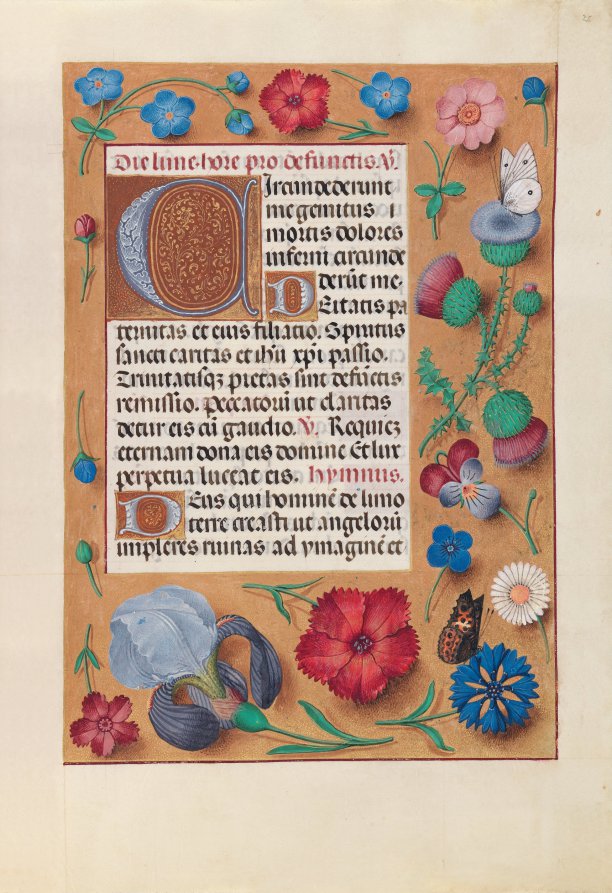 Die lune. hore pro defunctis. Ꝟ.
Circundederunt
me gemitus
mortis dolores
inferni circunde
derūt me.
Deitatis pa
ternitas et eius filiatio. Spiritus
sancti caritas et ihū xp̄i passio.
Trinitatisqz pietas sint defūctis
remissio. peccatorū ut claritas
detur eis cū gaudio. Ꝟ. Requiez
eternam dona eis domine Et lux
perpetua luceat eis. hymnus.
Deus qui hominē de limo
terre creasti ut angelorū
impleres ruinas ad ymaginē et